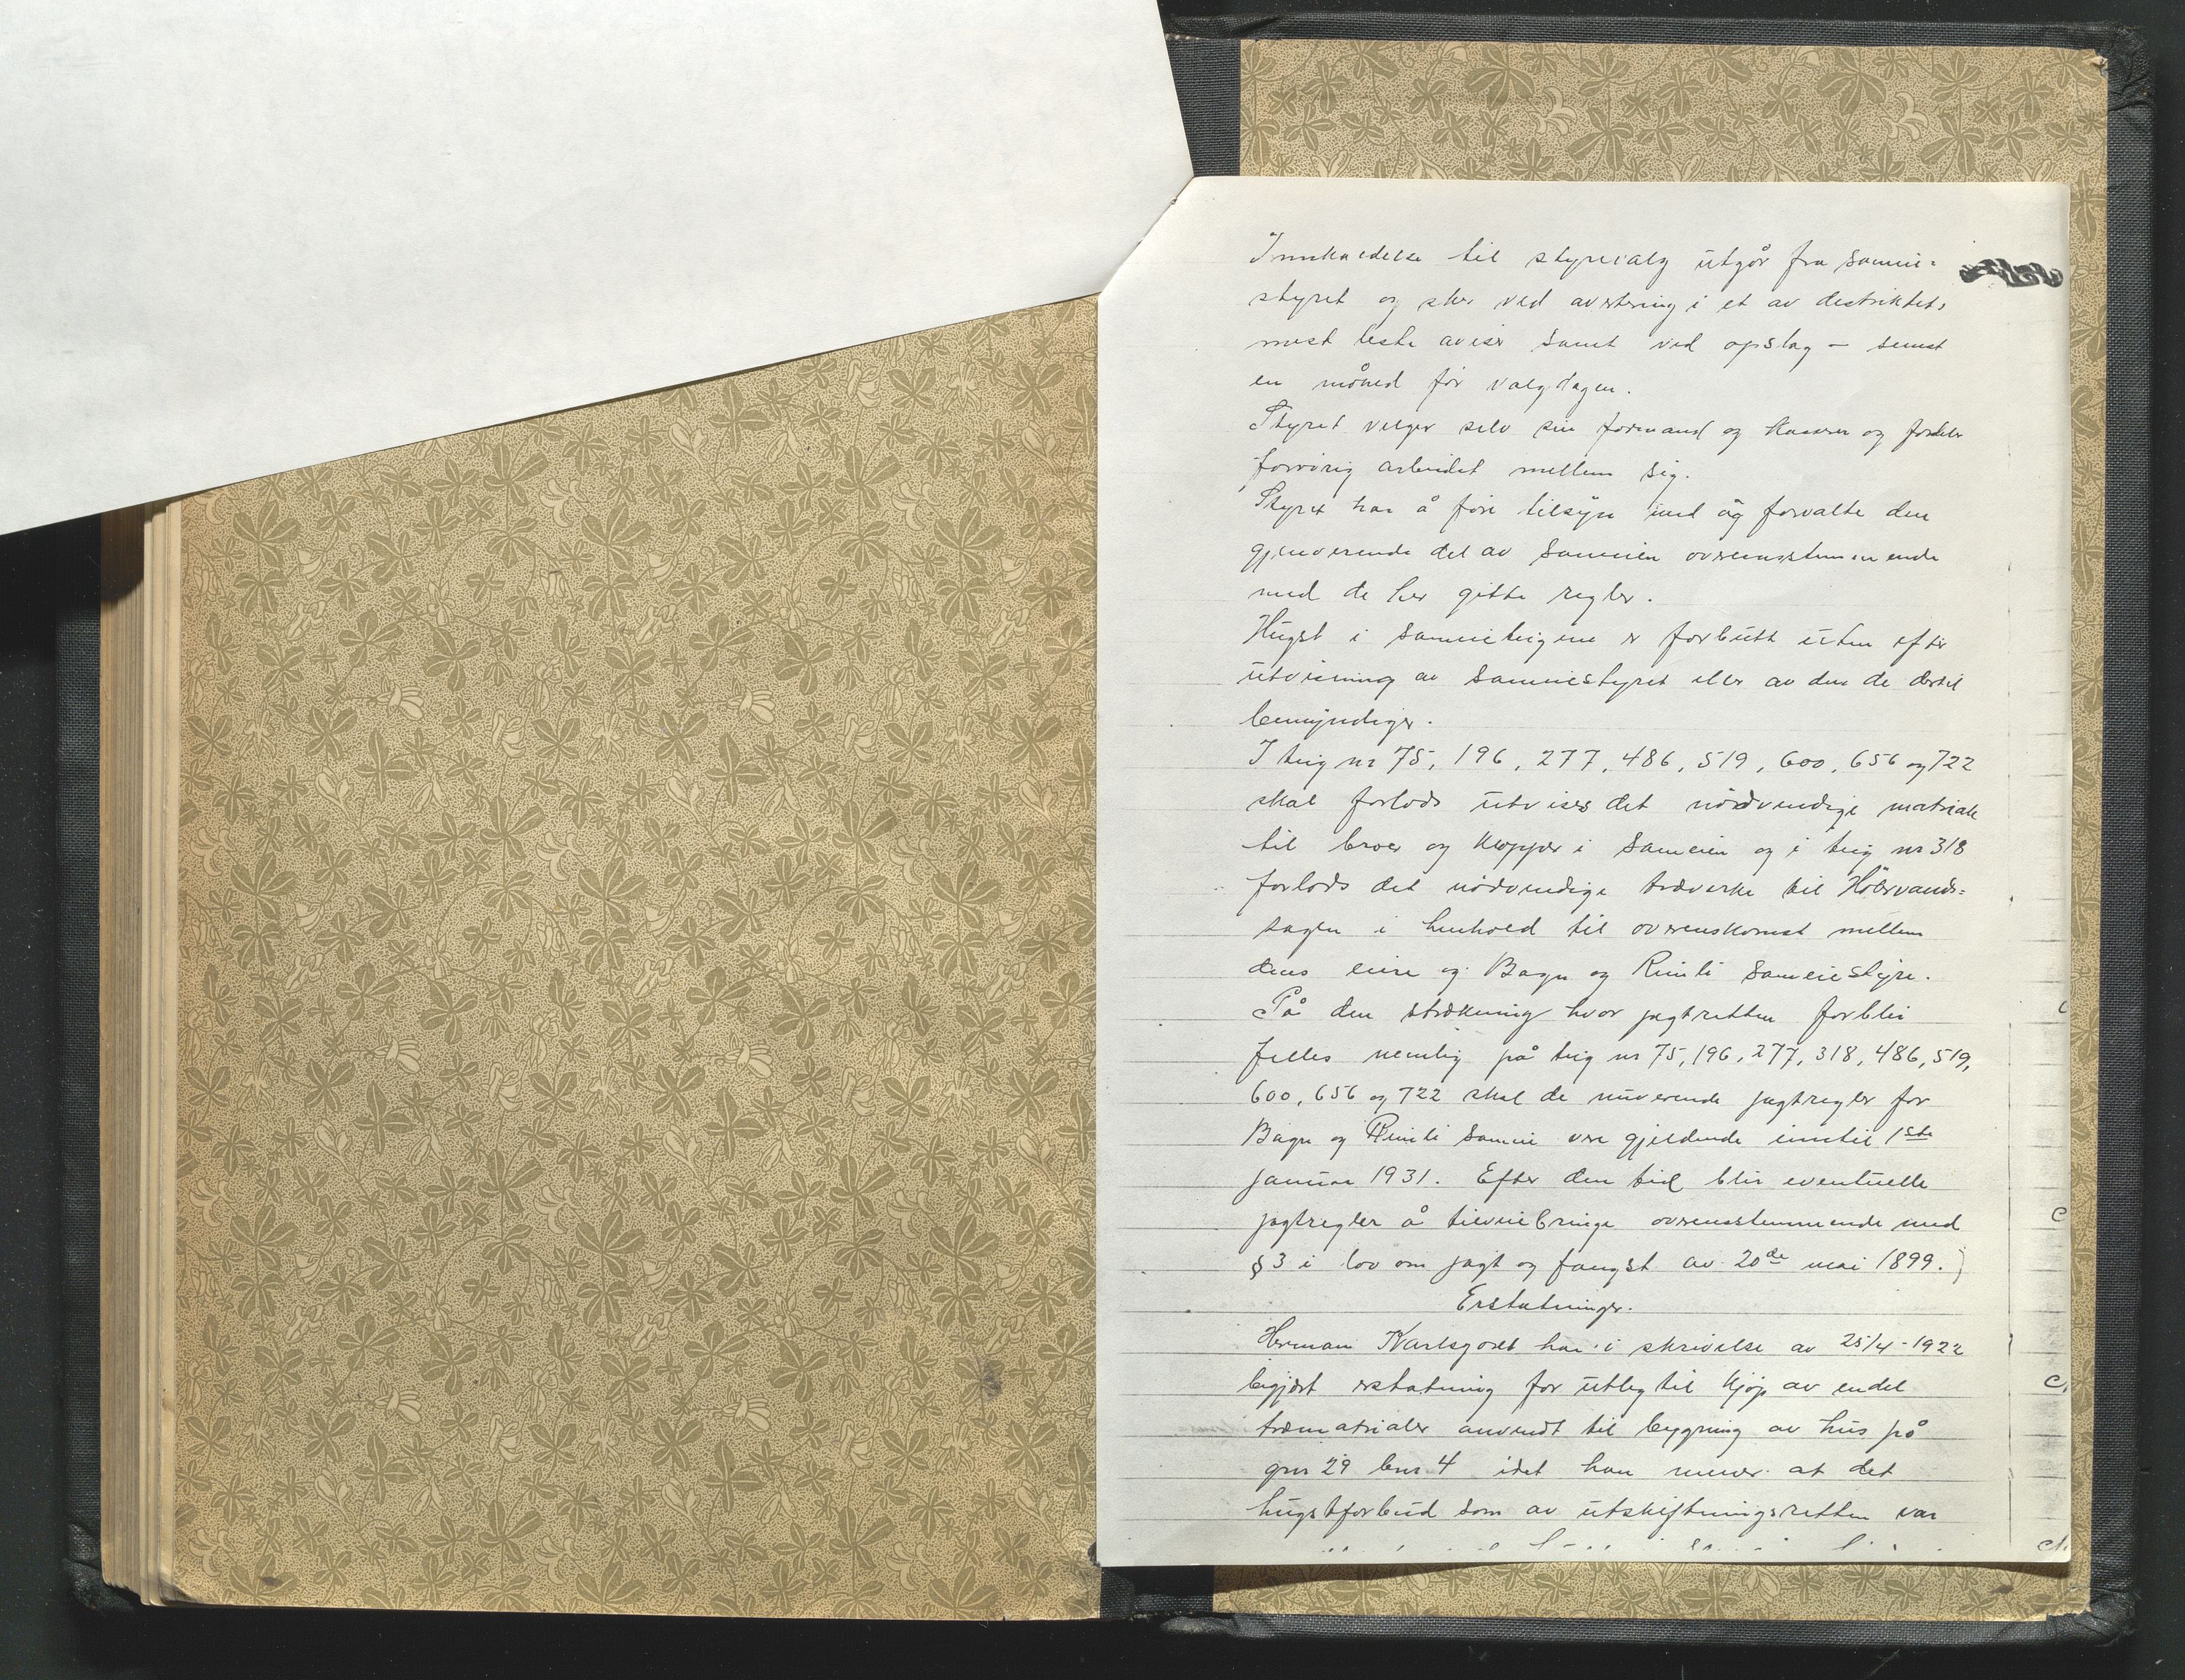 Innkaldelse til styrevalg utgår fra sameie=
styret og sker ved avertering i et av distriktets
mest leste aviser samt ved opslag — senest
en måned før valgdagen.
Styret velger selv sin formand og kasserer og fordeler
forøvrig arbeidet mellem sig.
Styret har å føre tilsyn med og forvalte den
gjenverende del av sameien overensstemmende
med de her gitte regler.
Hugst i sameieteigene er forbutt uten efter
utvisning av sameiestyret eller av den de dertil
bemyndiger.
I teig nr 75, 196, 277, 486, 519, 600, 656 og 722
skal forlods utvises det nødvendige matriale
til broer og klopper i sameien og i teig nr 318
forlods det nødvendige træverke til Hølervands=
sagen i henhold til overenskomst mellem
dens eiere og Bagn og Reinli sameiestyre.
På den strækning hvor jagtretten forblir
felles nemlig på teig nr 75, 196, 277, 318, 486, 519,
600, 656 og 722 skal de nuverende jagtregler for
Bagn og Reinli sameie vere gjeldende inntil 1ste
januar 1931. Efter den tid blir eventuelle
jagtregler å tilveiebringe overensstemmende med
§ 3 i lov om jagt og fangst av 20de mai 1899.)
Erstatninger.
Herman Karlsgodt har i skrivelse av 25/4-1922
begjært erstatning for utleg til kjøp av endel
træmatrialer anvendt til bygning av hus på
gnr 29 bnr 4 idet han mener at det
hugstforbud som av utskiftningsretten var